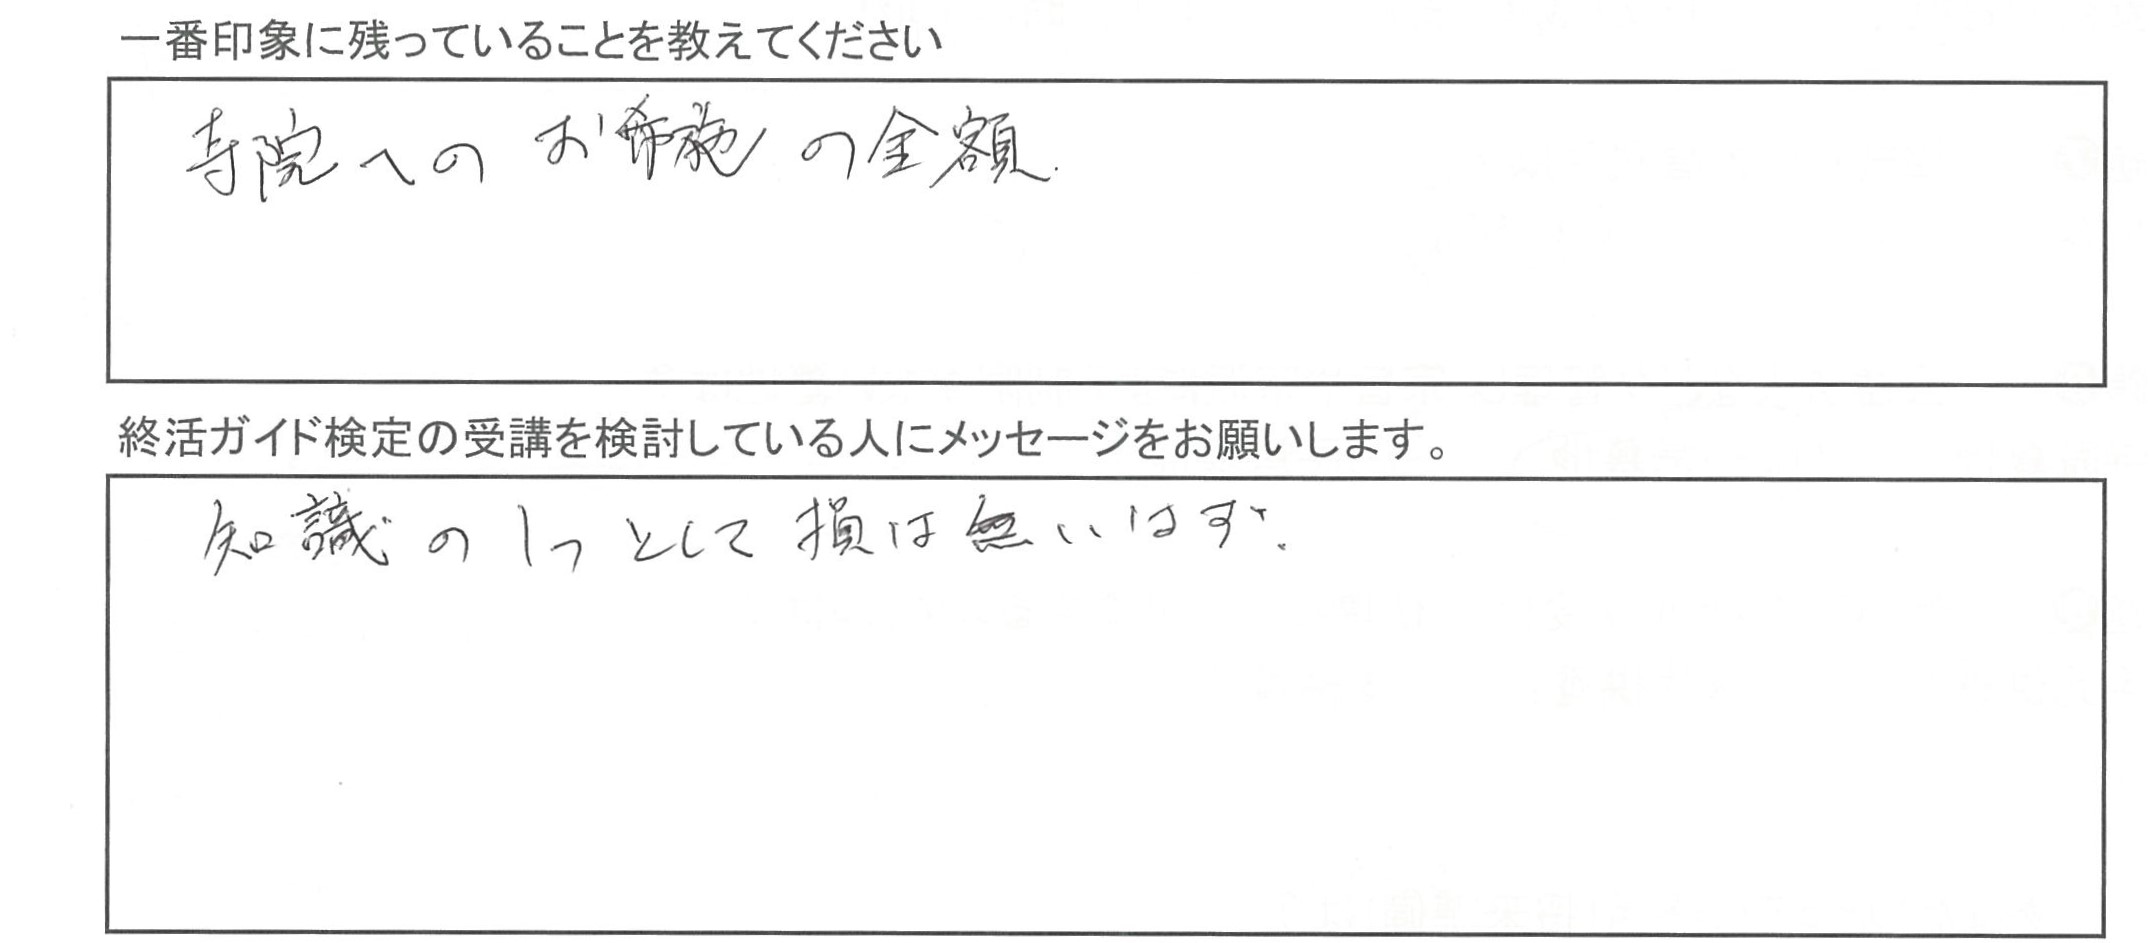 一番印象に残っていることを教えてください
寺院へのお希施の金額.
終活ガイド検定の受講を検討している人にメッセージをお願いします。
知識の1つとして損は無いはず.